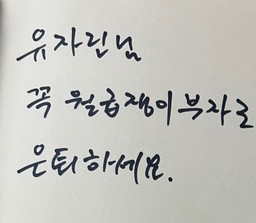 유자린님
꼭 월급쟁이 부자로
은퇴하세요.